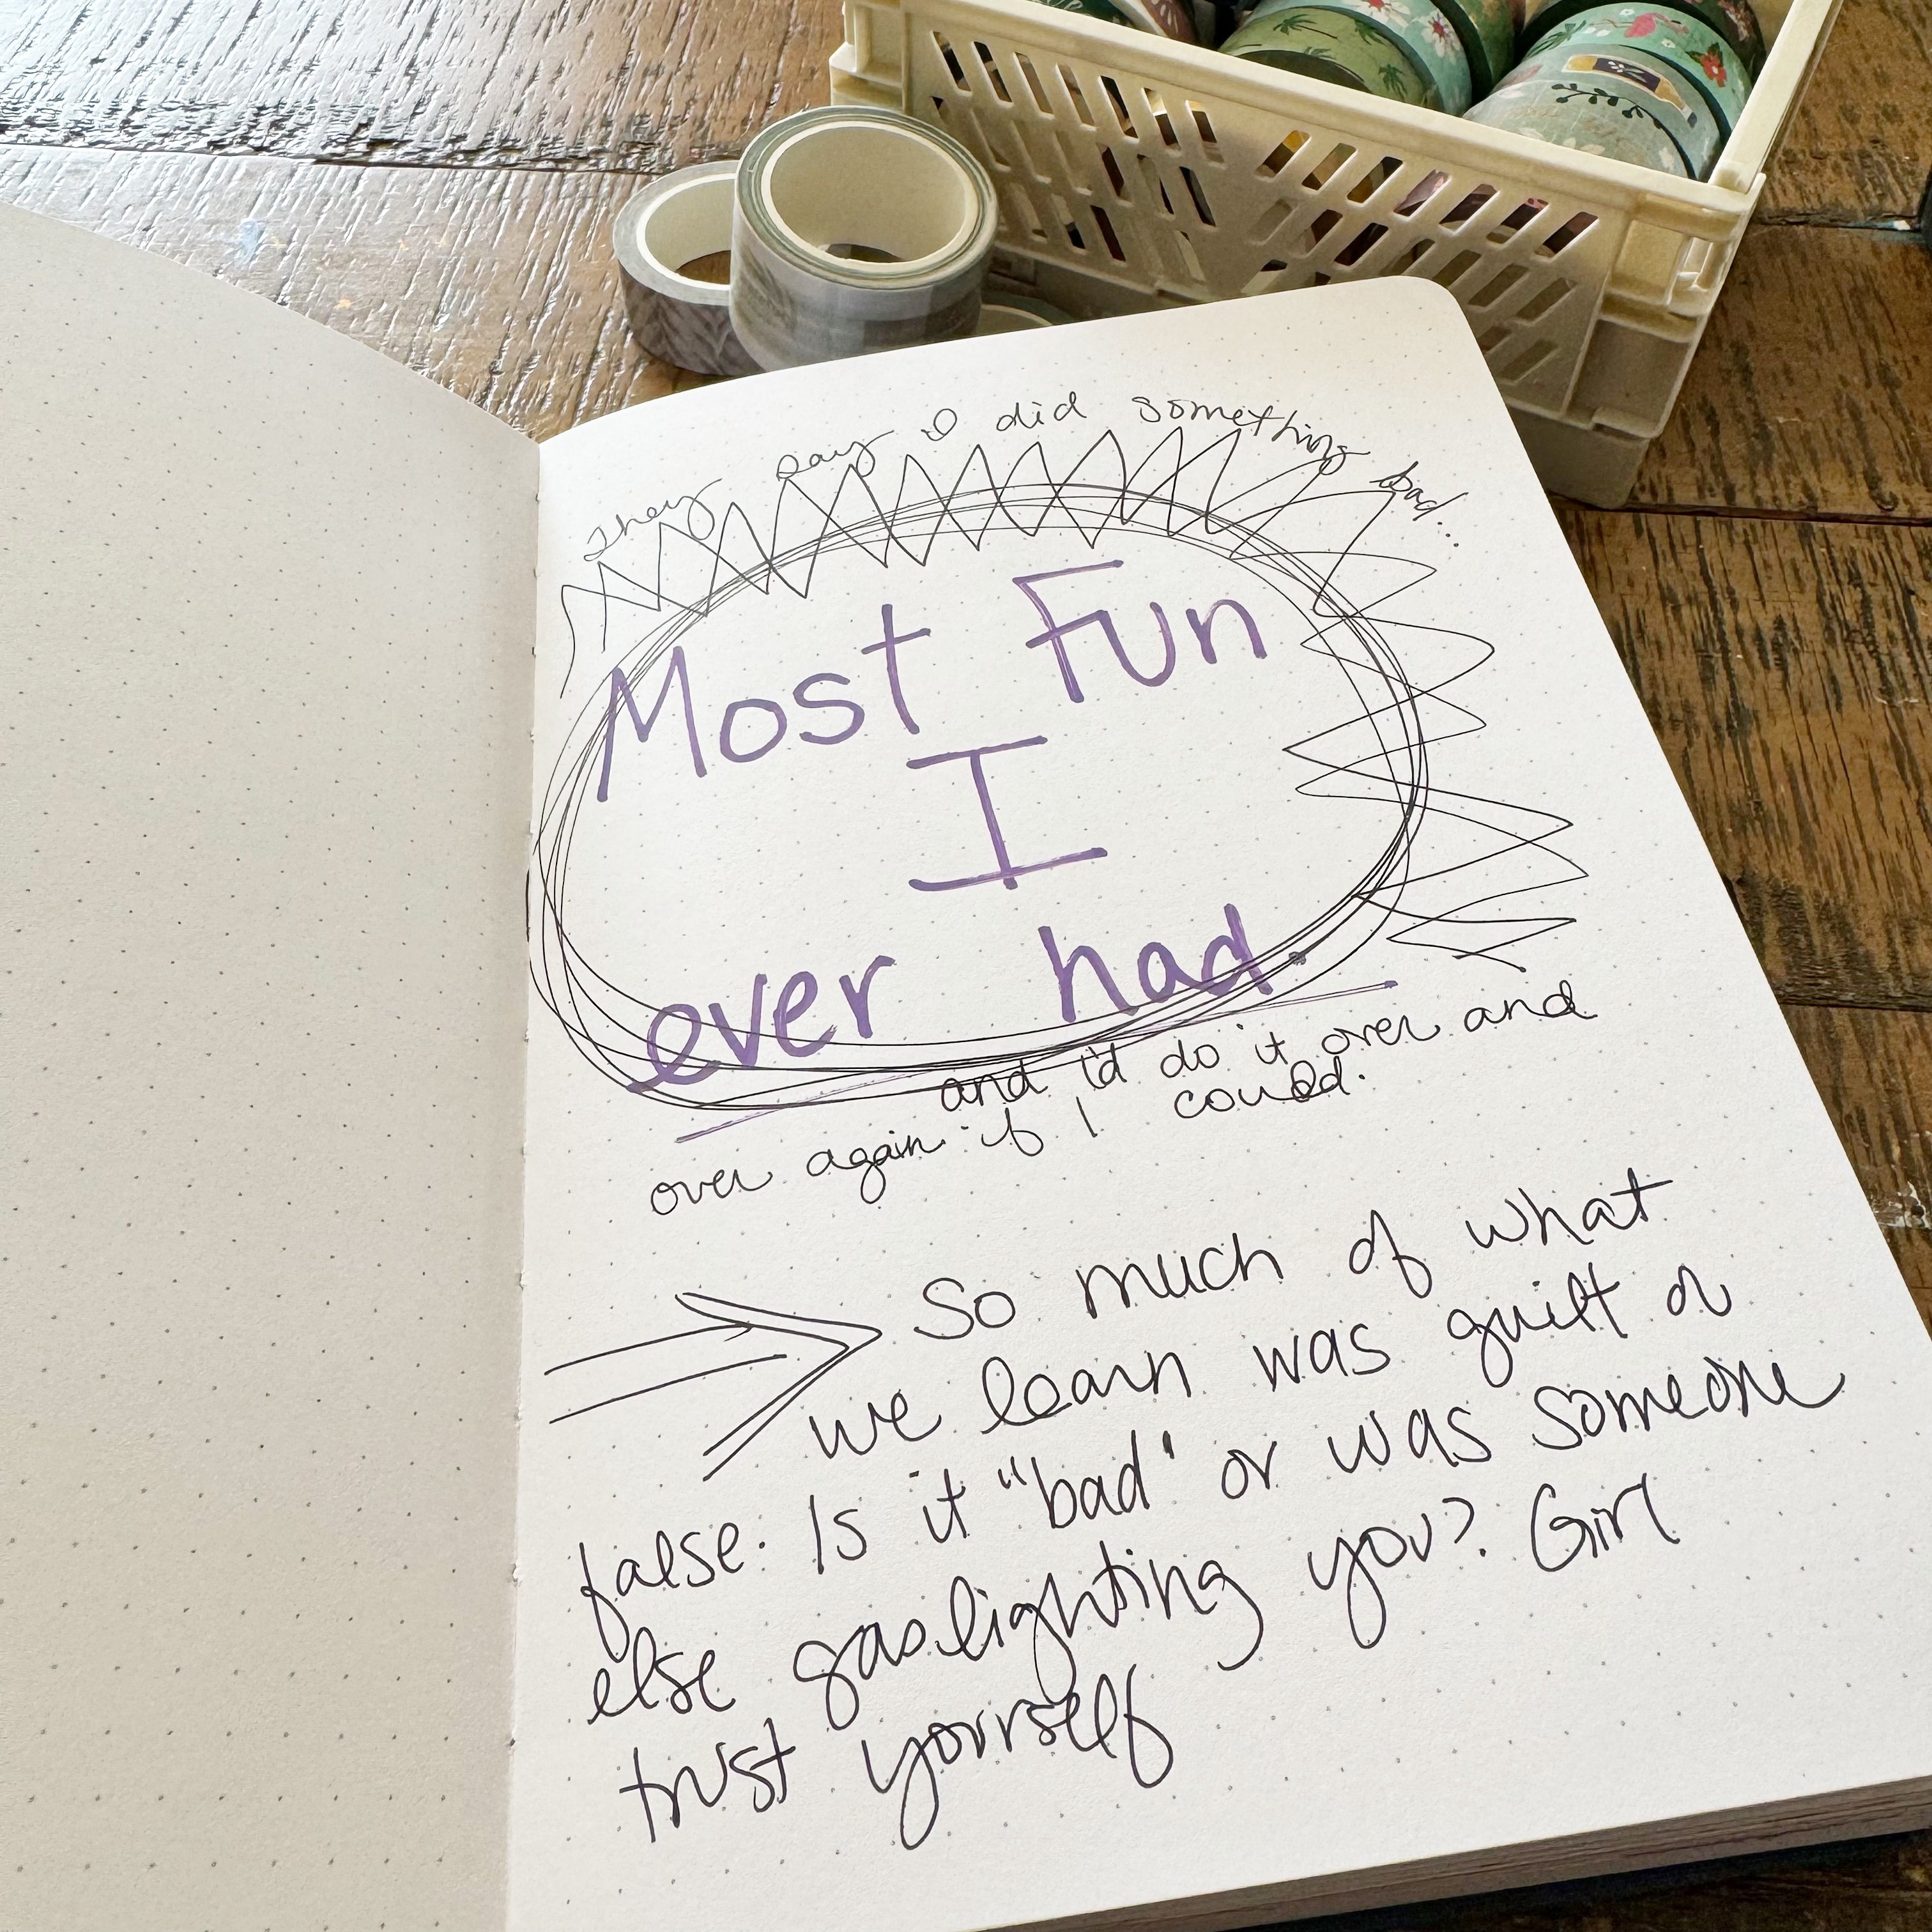 They say I did something bad...
Most Fun
I
ever had.
and I'd do it over and
over again if I could.
So much of what
we learn was guilt or
false. Is it "bad" or was someone
else gaslighting you? Girl
trust yourself